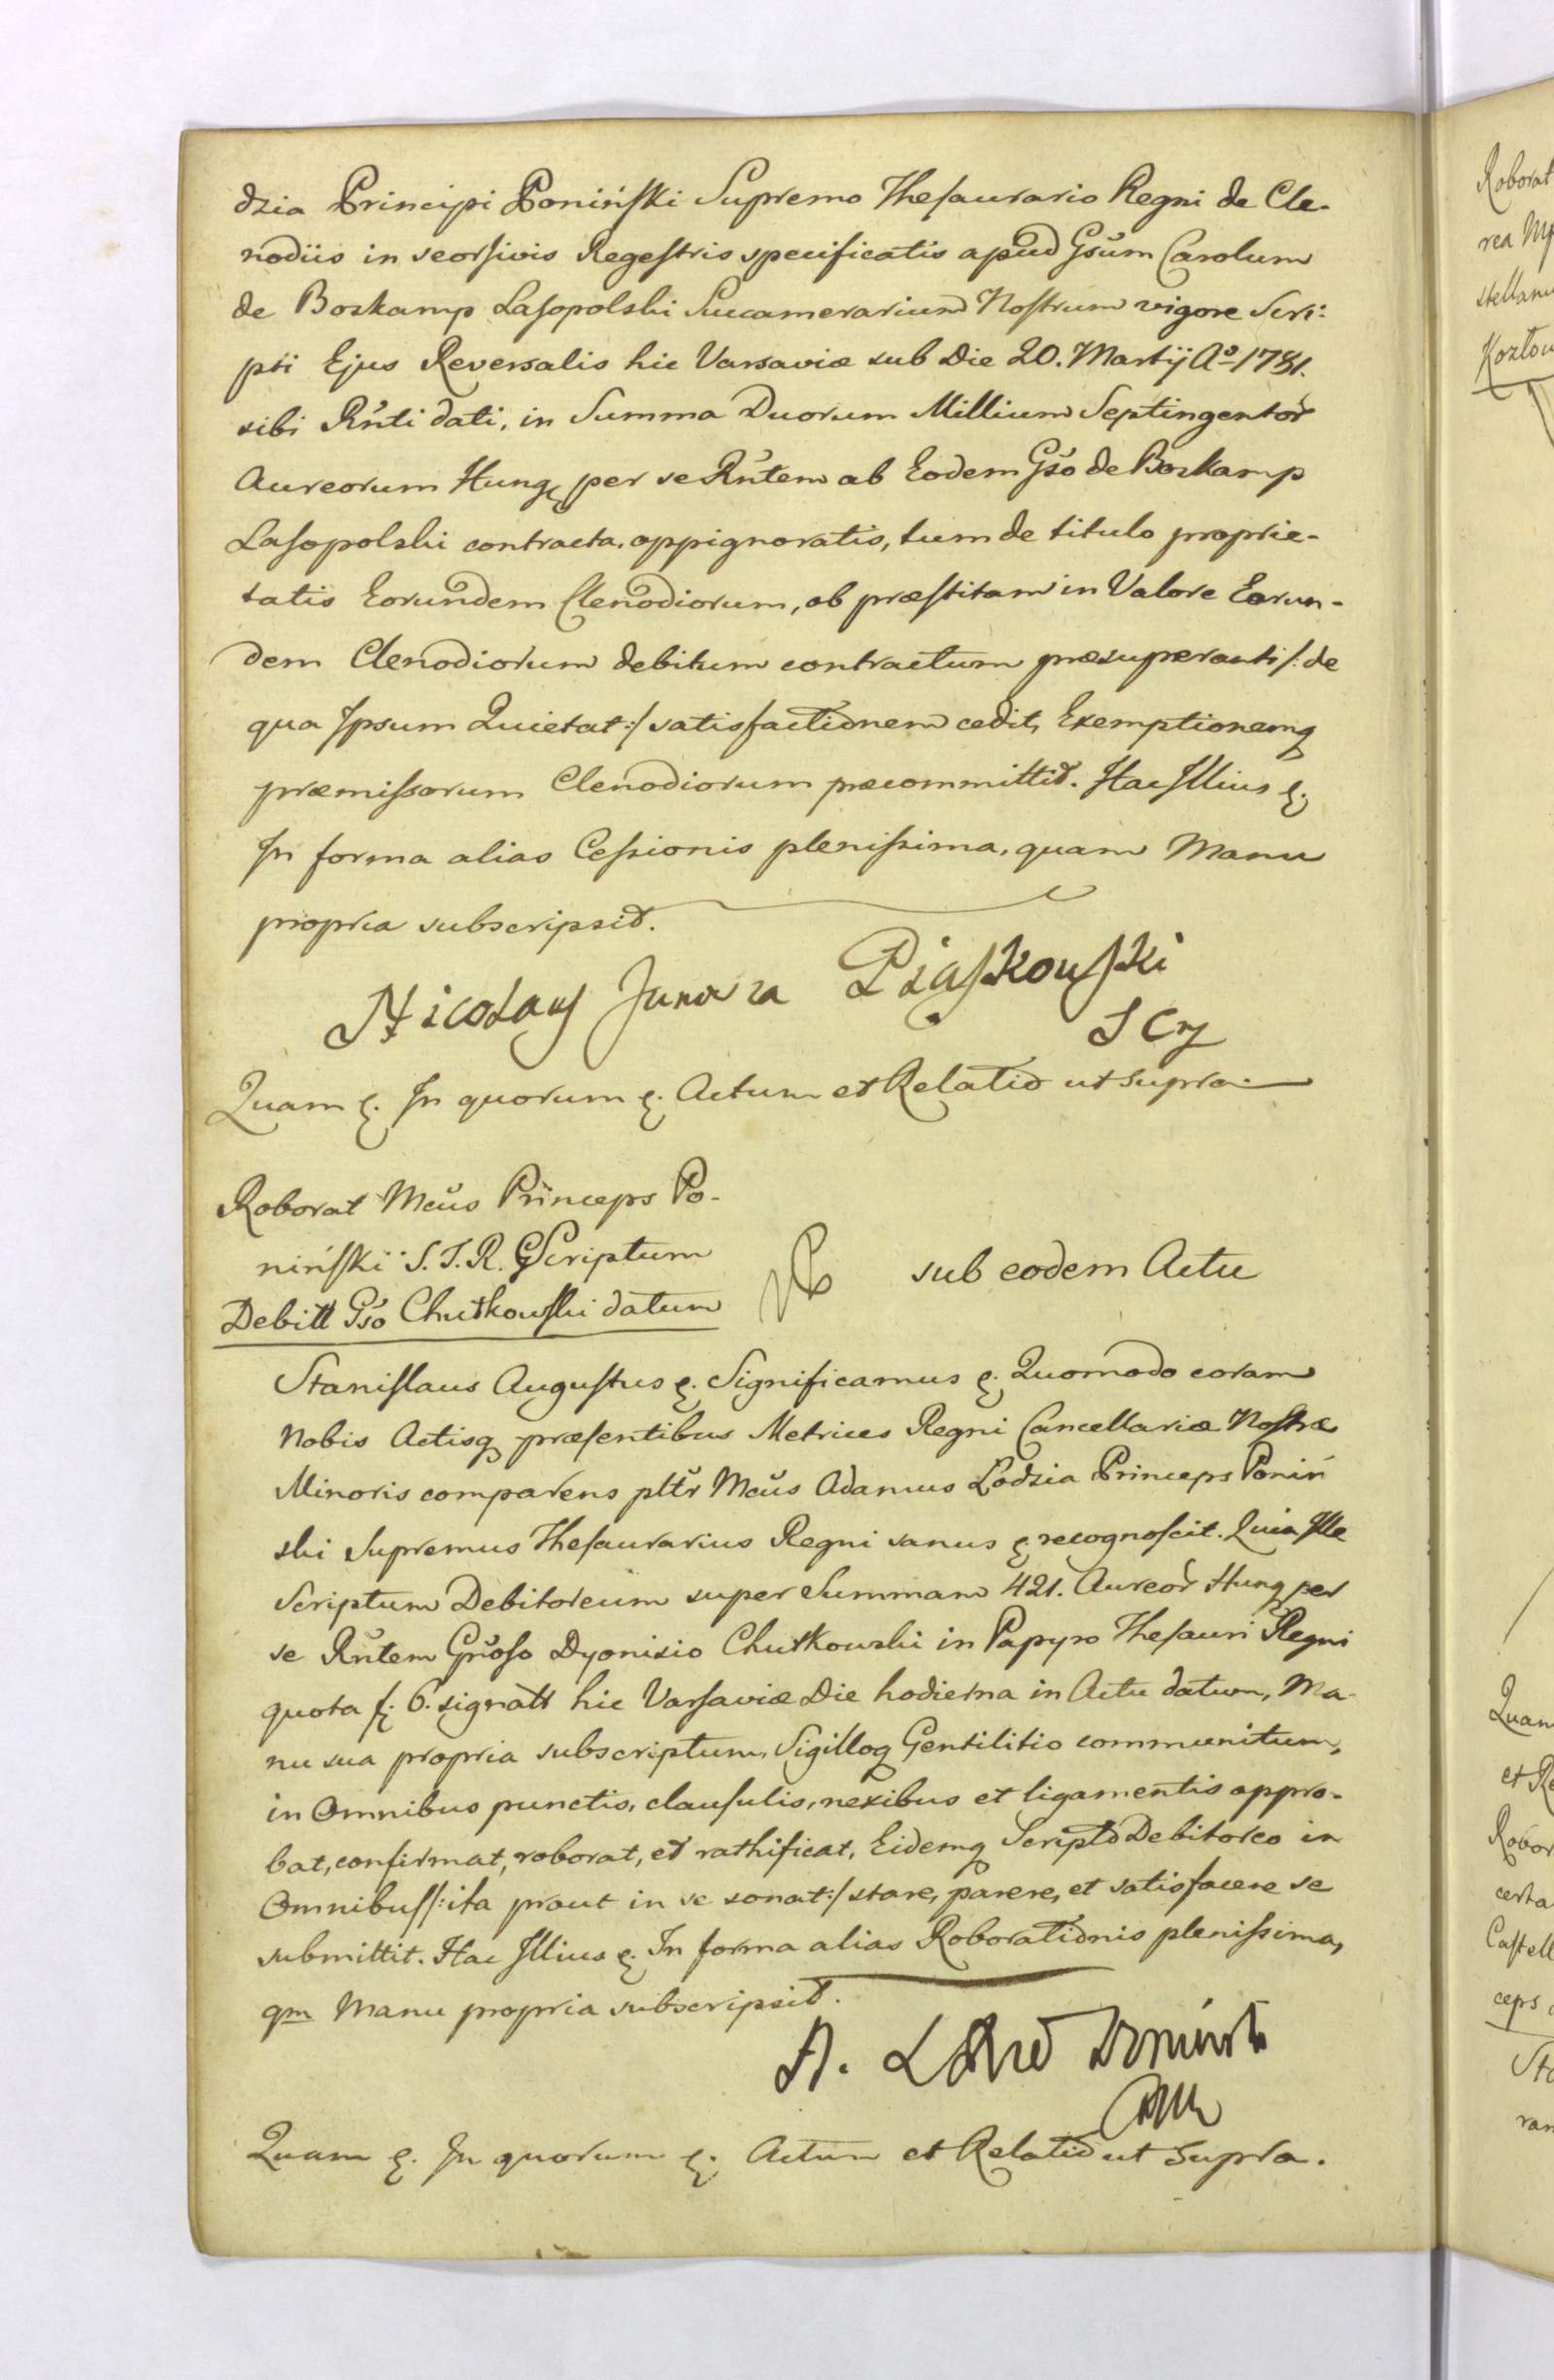 dzia Principi Poniński Supremo Thesaurario Regni de Cle-
nodiis in seorsivis Regestris specificatis apud Gsum Carolum
de Boskamp Lasopolski Succamerarium Nostrum vigore Scri-
pti Ejus Reversalis hic Varsaviæ sub Die 20. Martij Aº 1781.
sibi Rñti dati, in Summa Duorum Millium Septingentor
Aureorum Hung per se Rñtem ab Eodem Gso de Boskamp
Lasopolski contracta, oppignoratis, tum de titulo proprie-
tatis Eorundem Clenodiorum, ob præstitam in Valore Eorun-
dem Clenodiorum debitum contractum præsuperanti /: de
qua Ipsum Quietat :/ satisfactionem cedit, Exemptionemq
præmissorum Clenodiorum præcommittit. Hac Illius &.
In forma alias Cessionis plenissima, quam Manu
propria subscripsit.
Nicolaus Junosza Piaskowski
Quam &. In quorum &. Actum et Relatio ut supra.
Roborat Mcus Princeps Po-
niński S. T. R. Scriptum
Debitt Gso Chutkowski datum
sub eodem Actu
Stanislaus Augustus &. Significamus &. Quomodo coram
Nobis Actisq præsentibus Metrices Regni Cancellariæ Nostræ
Minoris comparens pltr Mcus Adamus Lodzia Princeps Poniń
ski Supremus Thesaurarius Regni sanus & recognoscit. Quia Ille
Scriptum Debitoreum super Summam 421. Aureor Hung per
se Rñtem Gñoso Dyonisio Chutkowski in Papyro Thesauri Regni
quota f. 6. signatt hic Varsaviæ Die hodierna in Actu datum, Ma-
nu sua propria subscriptum, Sigilloq Gentilitio communitum,
in Omnibus punctis, clausulis, nexibus et ligamentis appro-
bat, confirmat, roborat, et rathificat, Eidemq Scripto Debitoreo in
Omnibus /: ita prout in se sonat :/ stare, parere, et satisfacere se
submittit. Hac Illius &. In forma alias Roborationis plenissima,
qm Manu propria subscripsit.
A. Poniński
Quam &. In quorum &. Actum et Relatio ut supra.
Roborat
rea
Kozłow
Quam
et Re
Robor
certa
Castell
ceps
Sta
ram